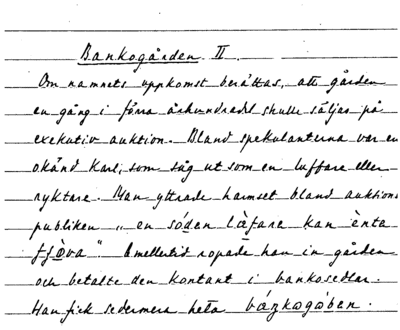 Bankogården II.
Om namnets uppkomst berättas, att gården
en gång i förra århundradet skulle säljas på
exekutiv auktion. Bland spekulanterna var en
okänd karl, som såg ut som en luffare eller
ryktare. Han yttrade harmset bland auktions
publiken „en sóden làfare kan ènta
Emellertid ropade han in gården
och betalte den kontant i bankosedlar.
Han fick sedermera heta